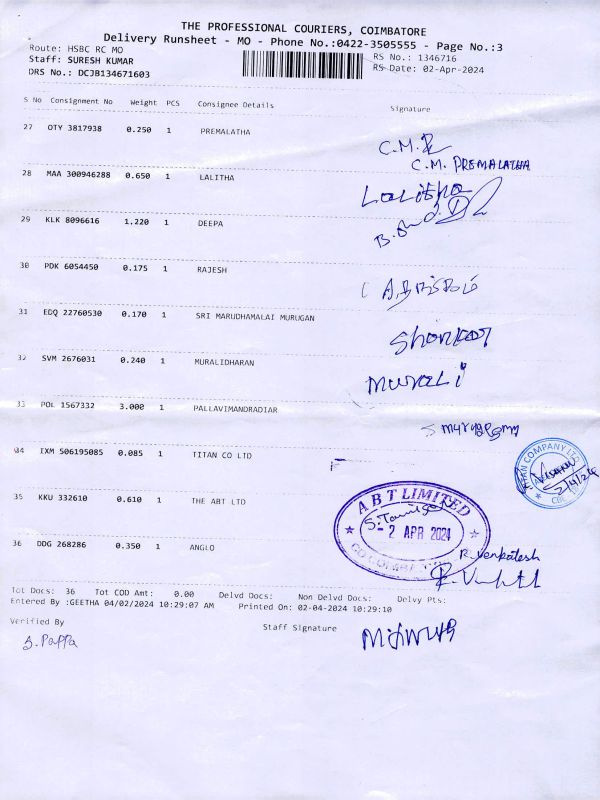 THE PROFESSIONAL COURIERS, COIMBATORE
Delivery Runsheet - MO - Phone No.:0422-3505555 - Page No.:3
Route: HSBC RC MO
RS No.: 1346716
Staff: SURESH KUMAR
RS Date: 02-Apr-2024
DRS No.: DCJB134671603
S No Consignment No Weight PCS Consignee Details Signature
27 OTY 3817938 0.250 1 PREMALATHA
C.M.
C.M. PREMALATHA
28 MAA 300946288 0.650 1 LALITHA
Lalitha
29 KLK 8096616 1.220 1 DEEPA
30 PDK 6054450 0.175 1 RAJESH
31 EDQ 22760530 0.170 1 SRI MARUDHAMALAI MURUGAN
Shankar
32 SVM 2676031 0.240 1 MURALIDHARAN
Murali
33 POL 1567332 3.000 1 PALLAVIMANDRADIAR
34 IXM 506195085 0.085 1 TITAN CO LTD
TITAN COMPANY LTD
2/4/24
35 KKU 332610 0.610 1 THE ABT LTD
ABT LIMITED
- 2 APR 2024
36 DDG 268286 0.350 1 ANGLO
R. Venkatesh
Tot Docs: 36 Tot COD Amt: 0.00 Delvd Docs: Non Delvd Docs: Delvy Pts:
Entered By :GEETHA 04/02/2024 10:29:07 AM Printed On: 02-04-2024 10:29:10
Verified By Staff Signature
S. Pappa